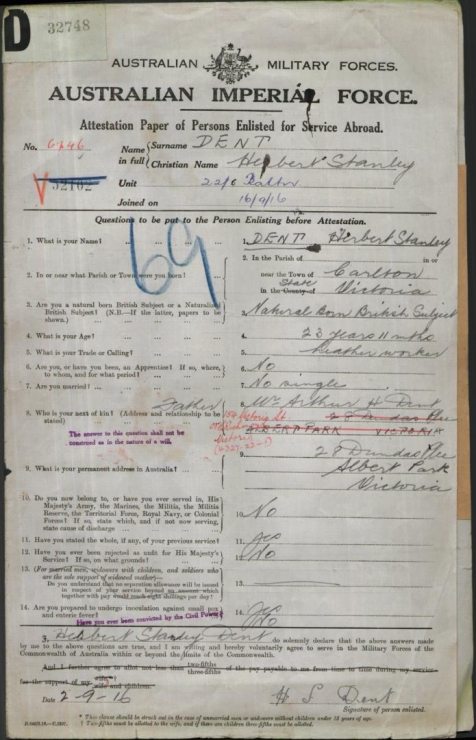 D
32748
AUSTRALIAN MILITARY FORCES.
AUSTRALIAN IMPERIAL FORCE.
Attestation Paper of Persons Enlisted for Service Abroad.
No. Name in full { Surname DENT
Christian Name Herbert Stanley
Unit
Joined on 16/9/16
Questions to be put to the Person Enlisting before Attestation.
69
1. What is your Name? ... 1. DENT Herbert Stanley
2. In or near what Parish or Town were you born? ... 2. In the Parish of in or
near the Town of Carlton
in the County of State Victoria
3. Are you a natural born British Subject or a Naturalised
British Subject? (N.B.—If the latter, papers to be
shown.) 3. Natural Born British Subject
4. What is your Age? ... 4. 23 years 11 mths
5. What is your Trade or Calling? ... 5. Leather worker
6. Are you, or have you been, an Apprentice? If so, where,
to whom, and for what period? 6. No
7. Are you married? ... 7. No single
8. Who is your next of kin? (Address and relationship to be
stated) Father 8. Mr Arthur H Dent
28 Dundas Plce
ALBERT PARK VICTORIA
The answer to this question shall not be
construed as in the nature of a will.
9. What is your permanent address in Australia? ... 9. 28 Dundas Plce
Albert Park
Victoria
10. Do you now belong to, or have you ever served in, His
Majesty's Army, the Marines, the Militia, the Militia
Reserve, the Territorial Force, Royal Navy, or Colonial
Forces? If so, state which, and if not now serving,
state cause of discharge 10. No
11. Have you stated the whole, if any, of your previous service? 11. Yes
12. Have you ever been rejected as unfit for His Majesty's
Service? If so, on what grounds? 12. No
13. (For married men, widowers with children, and soldiers who
are the sole support of widowed mother—
Do you understand that no separation allowance will be issued
in respect of your service beyond an amount which
together with pay would reach eight shillings per day? 13.
14. Are you prepared to undergo inoculation against small pox
and enteric fever? 14. Yes
Have you ever been convicted by the Civil Power? No
I, Herbert Stanley Dent do solemnly declare that the above answers made
by me to the above questions are true, and I am willing and hereby voluntarily agree to serve in the Military Forces of the
Commonwealth of Australia within or beyond the limits of the Commonwealth.
And I further agree to allot not less than two-fifths
three-fifths of the pay payable to me from time to time during my service
for the support of my wife
wife and children.
Date 2-9-16 H S Dent
Signature of person enlisted.
* This clause should be struck out in the case of unmarried men or widowers without children under 18 years of age.
† Two-fifths must be allotted to the wife, and if there are children three-fifths must be allotted.